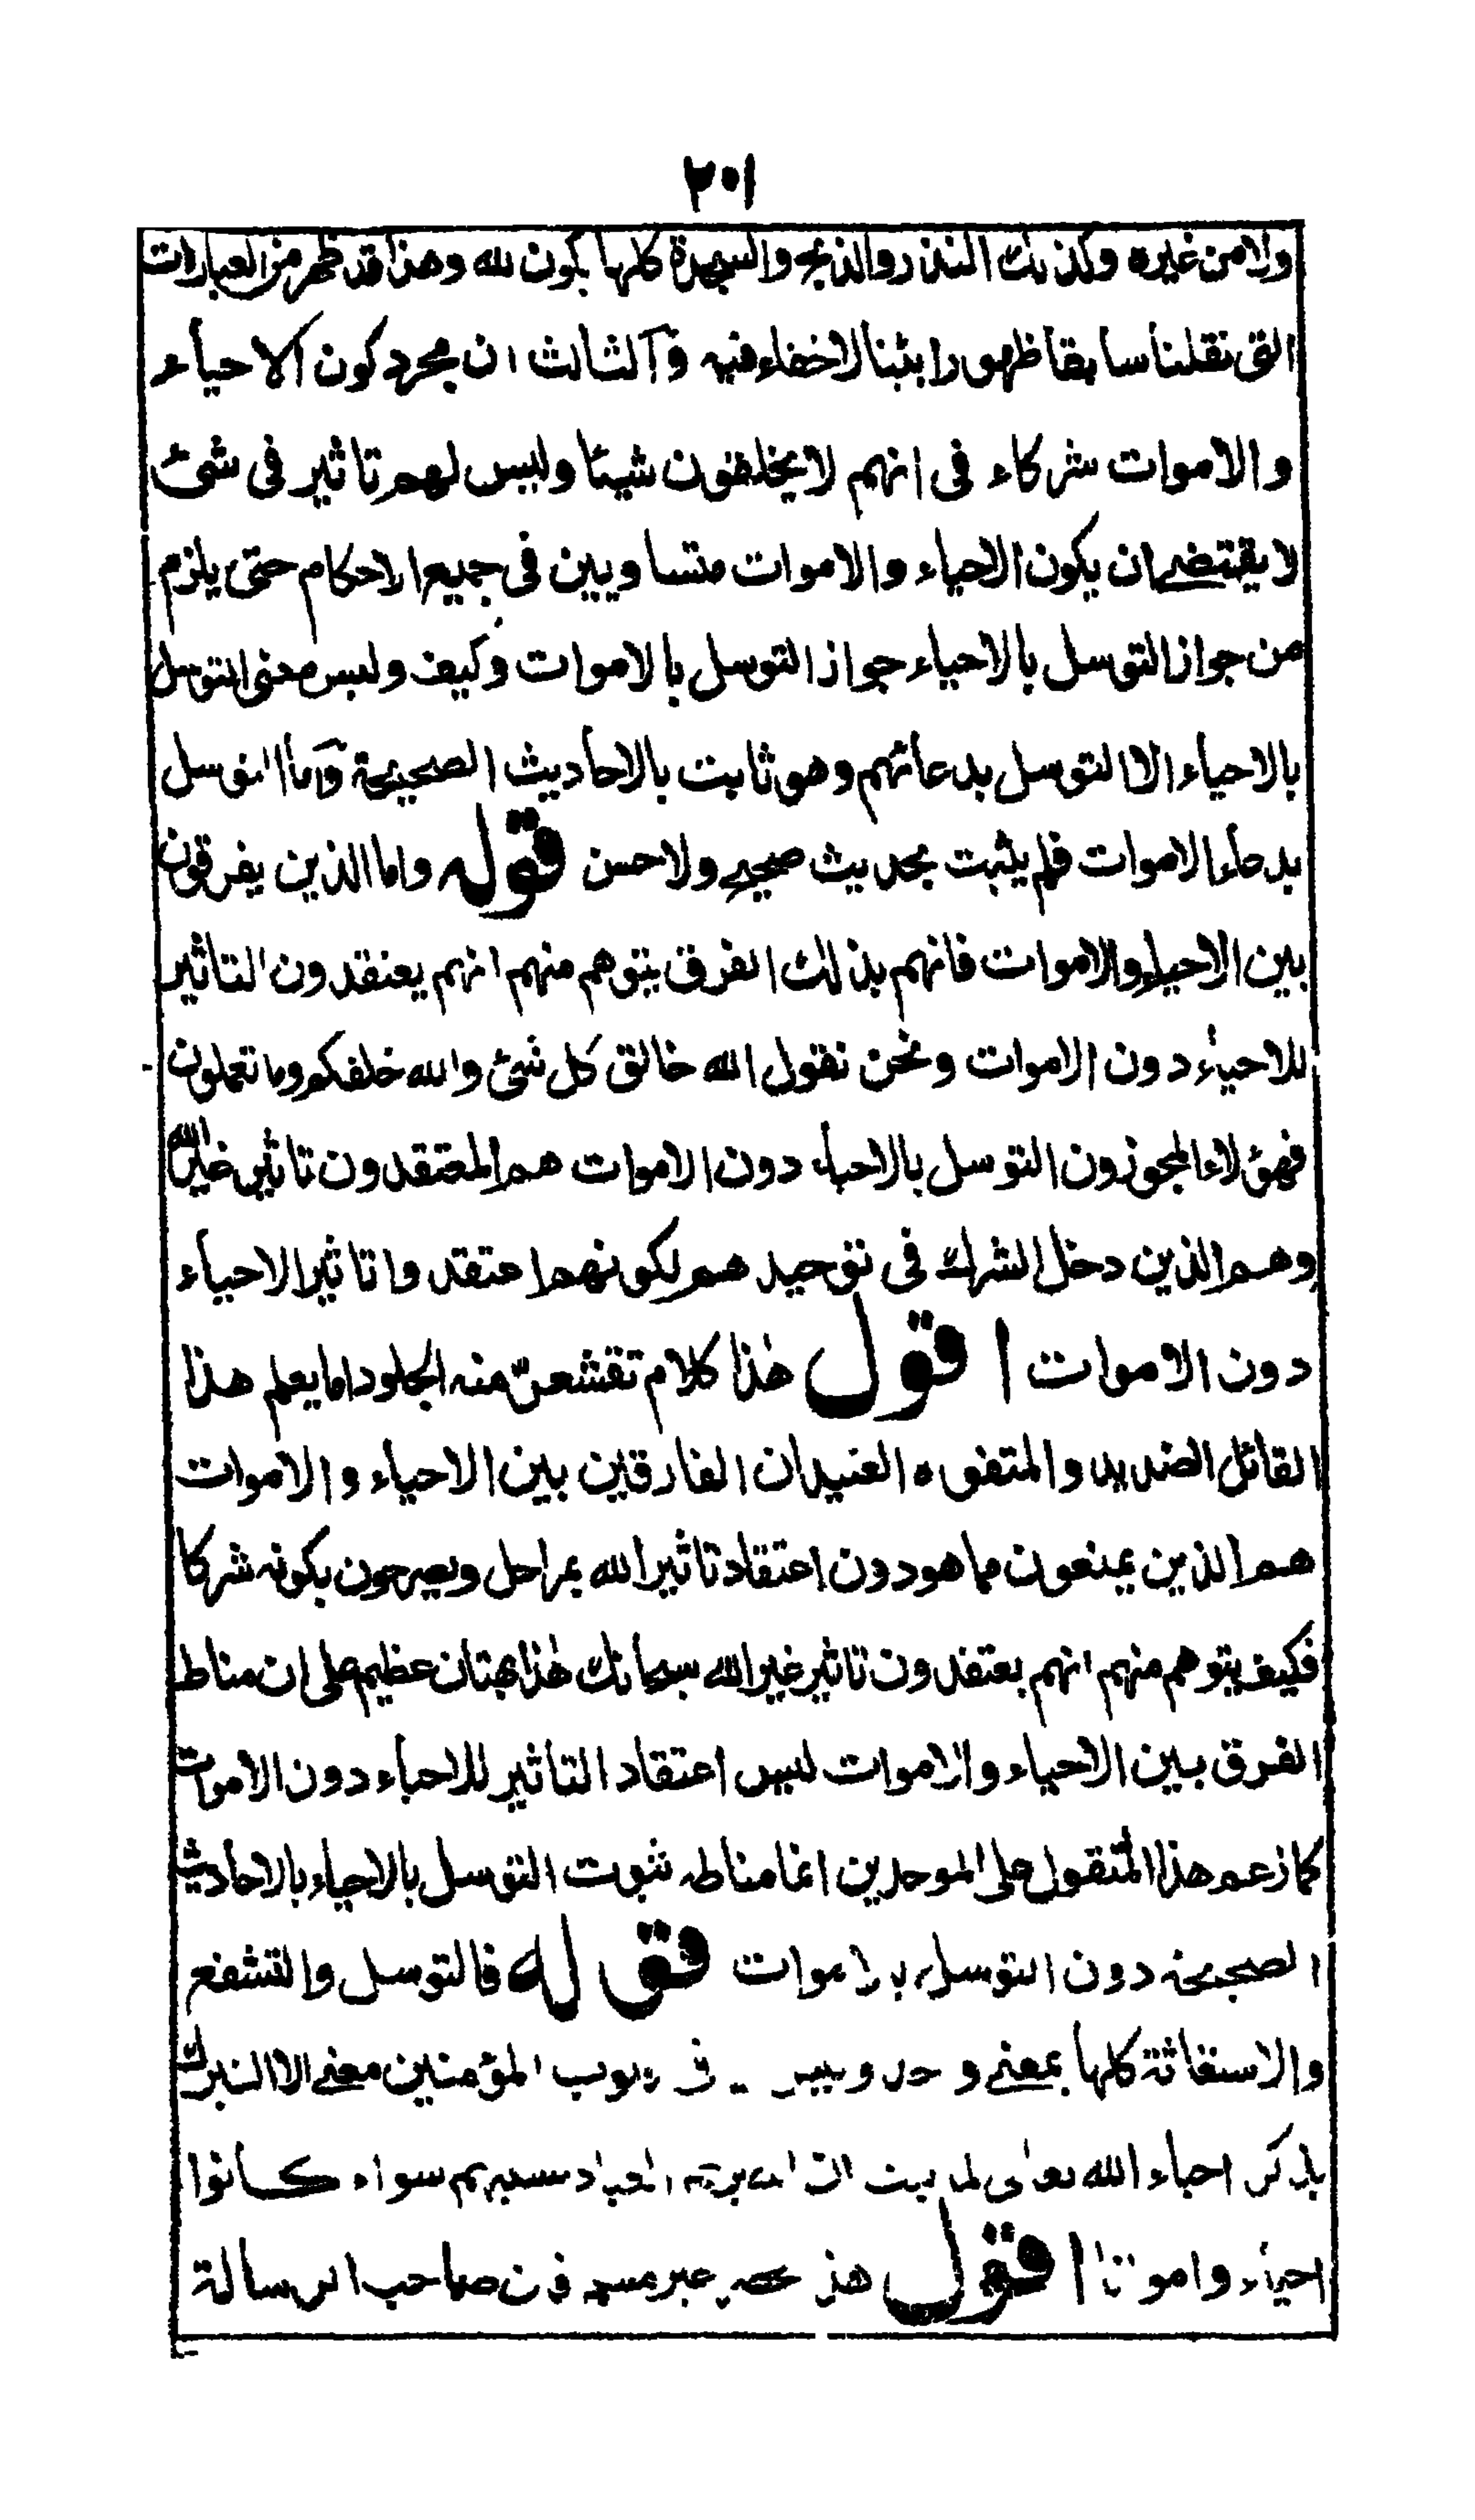 ٢٠١
ولا من غيره وكذلك النذر والذبح والسجدة كلها يكون لله وهذا قد ظهر من العبارات
التى نقلنا سابقا ظهورا بينا لاخفاء فيه والثالث ان مجرد كون الاحياء
والاموات شركاء فى انهم لا يخلقون شيئا وليس لهم تاثير فى شئ
لا يقتضى ان يكون الاحياء والاموات متساويين فى جميع الاحكام حتى يلزم
من جواز التوسل بالاحياء جواز التوسل بالاموات وكيف وليس معنى التوسل
بالاحياء الا التوسل بدعائهم وهو ثابت بالاحاديث الصحيحة واما التوسل
بدعاء الاموات فلم يثبت بحديث صحيح ولا حسن قوله واما الذين يفرقون
بين الاحياء والاموات فانهم بذلك الفرق يتوهم منهم انهم يعتقدون التاثير
للاحياء دون الاموات ونحن نقول الله خالق كل شئ والله خلقكم وما تعملون
فهؤلاء المجوزون التوسل بالاحياء دون الاموات هم المعتقدون تاثير غير الله
وهم الذين دخل الشرك فى توحيدهم لكونهم اعتقدوا تاثير الاحياء
دون الاموات اقول هذا كلام تقشعر منه الجلود اما يعلم هذا
القائل الضديد والمتفوه العنيد ان الفارقين بين الاحياء والاموات
هم الذين يمنعون مما هو دون اعتقاد تاثير الله بمراحل ويصرحون بكونه شركا
فكيف يتوهم منهم انهم يعتقدون تاثير غير الله سبحانك هذا بهتان عظيم على ان مناط
الفرق بين الاحياء والاموات ليس اعتقاد التاثير للاحياء دون الاموات
كما زعم هذا المتقول على الموحدين انما مناطه ثبوت التوسل بالاحياء بالاحاديث
الصحيحة دون التوسل بالاموات قوله فالتوسل والتشفع
والاستغاثة كلها بمعنى واحد وليس قلوب المؤمنين معنى الا التبرك
بذكر احباء الله تعالى لما ثبت ان الله يرحم العباد بسببهم سواء كانوا
احياء وامواتا اقول هذا فان صاحب الرسالة